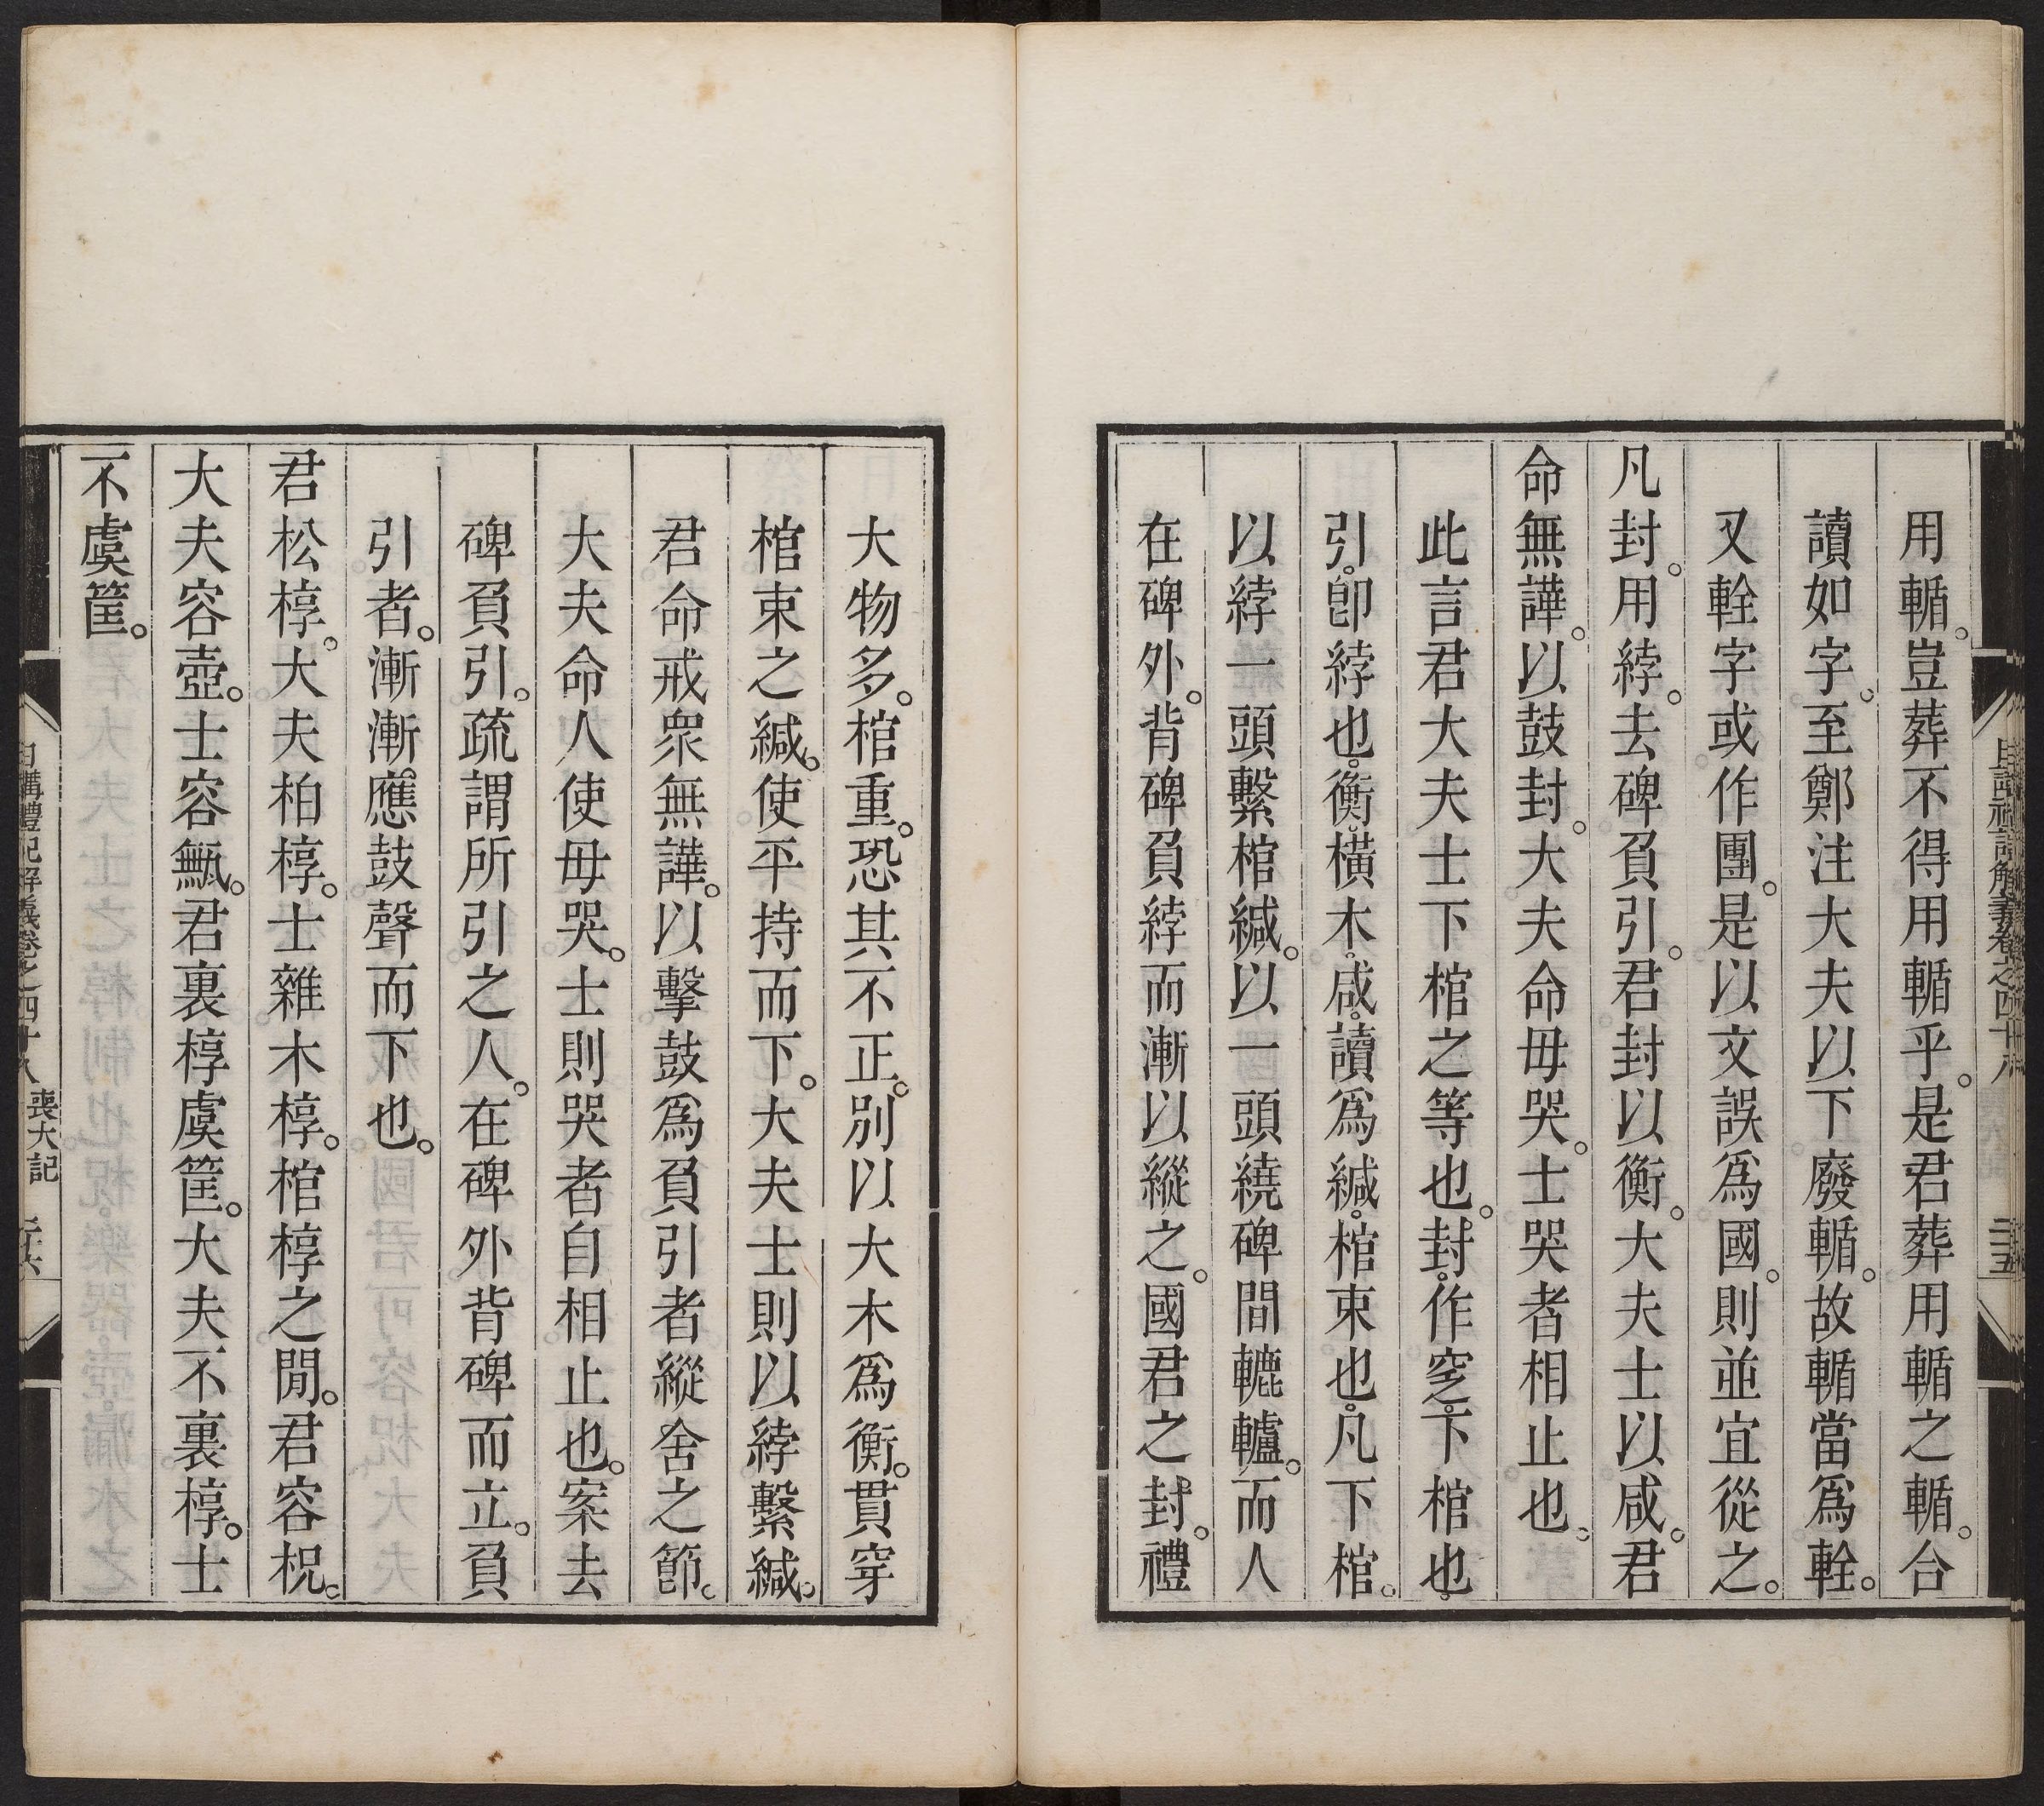 用輴。豈葬不得用輴乎。是君葬用輴之輴。合
讀如字。至鄭注大夫以下廢輴。故輴當爲輇。
又輇字或作團。是以文誤爲國。則並宜從之。
凡封。用綍。去碑負引。君封以衡。大夫士以咸。君
命無譁。以鼓封。大夫命毋哭。士哭者相止也。
此言君大夫士下棺之等也。封。作窆。下棺也。
引。卽綍也。衡。橫木。咸。讀爲緘。棺束也。凡下棺。
以綍一頭繫棺緘。以一頭繞碑間轆轤。而人
在碑外。背碑負綍而漸以縱之。國君之封。禮
大物多。棺重。恐其不正。別以大木爲衡。貫穿
棺束之緘。使平持而下。大夫士則以綍繫緘。
君命戒衆無譁。以擊鼓爲負引者縱舍之節。
大夫命人使毋哭。士則哭者自相止也。案去
碑負引。疏謂所引之人。在碑外背碑而立。負
引者。漸漸應鼓聲而下也。
君松椁。大夫柏椁。士雜木椁。棺椁之閒。君容柷。
大夫容壺。士容甒。君裏椁虞筐。大夫不裏椁。士
不虞筐。
日講禮記解義卷之四十八 喪大記 三十六